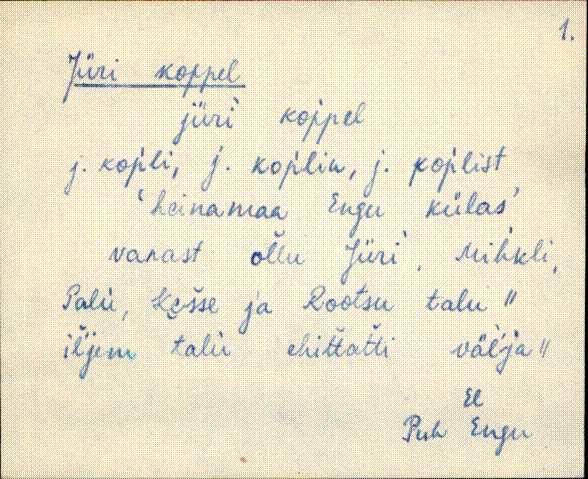 1.
Jüri koppel
jüri koppel
j. kopli, j. koplin, j. koplist
'heinamaa Engu külas'
vanast ollu Jüri, Mihkli,
Palu, Kõsse ja Rootsu talu "
iljem talu ehittatti välja "
El
Puh Engu